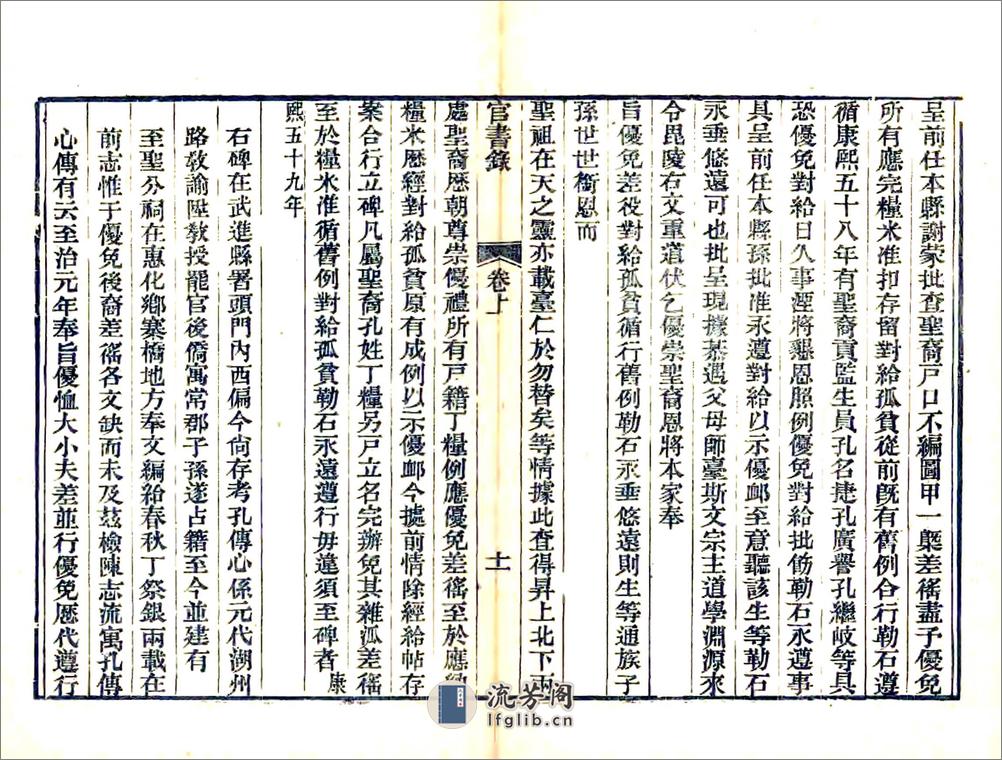 呈前任本縣謝蒙批查聖裔戸口不編圖甲一槩差徭盡予優免
所有應完糧米准扣存留對給孤貧從前旣有舊例合行勒石遵
循康熙五十八年有聖裔貢監生員孔名㨗孔廣譽孔繼岐等具
恐優免對給日久事湮將懇恩照例優免對給批飭勒石永遵事
具呈前任本縣孫批准永遵對給以示優邺至意聽該生等勒石
永垂悠遠可也批呈現據茶遇父母師臺斯文宗主道學淵源來
令毘陵右文重道伏乞優崇聖裔恩將本家奉
旨優免差役對給孤貧循行舊例勒石永垂悠遠則生等通族子
孫世世銜恩而
聖祖在天之靈亦載臺仁於勿替矣等情據此查得昇上北下兩
官書錄
卷上
十一
處聖裔歴朝尊崇優禮所有戸籍丁糧例應優免差徭至於應
糧米歴經對給孤貧原有成例以示優邺今據前情除經給帖存
案合行立碑凡屬聖裔孔姓丁糧另戸立名完辦免其雜泒差徭
至於糧米准循舊例對給孤貧勒石永遠遵行毋違須至碑者 康
熙五十九年
右碑在武進縣署頭門內西偏今尙存考孔傳心係元代湖州
路敎諭陞敎授罷官後僑寓常郡子孫遂占籍至今並建有
至聖分祠在惠化鄉寨橋地方奉文編給春秋丁祭銀兩載在
前志惟于優免後裔差徭各文缺而未及玆檢陳志流寓孔傳
心傳有云至治元年奉旨優恤大小夫差並行優免歴代遵行
流芳阁
lfglib.cn